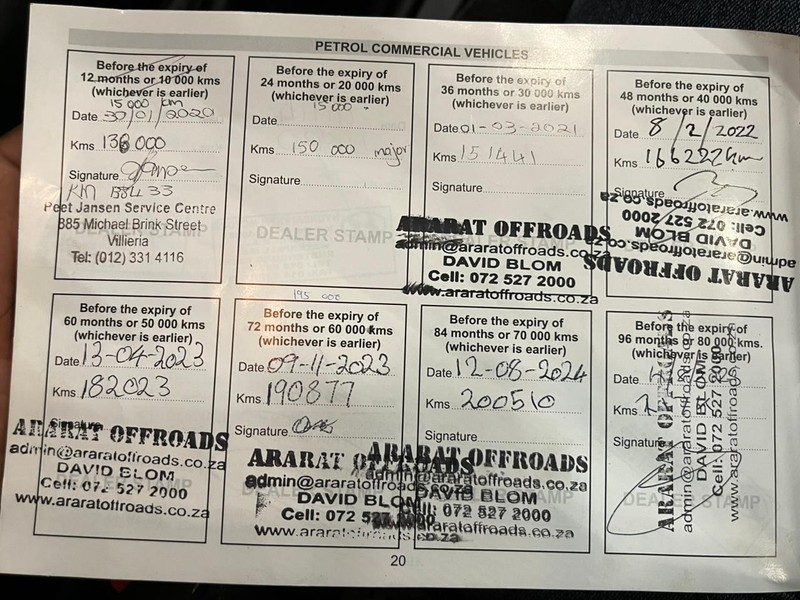 PETROL COMMERCIAL VEHICLES
Before the expiry of
12 months or 10 000 kms
(whichever is earlier)
15 000 km
Date 30/01/2020
Kms 136 000
Signature
KM 138433
Peet Jansen Service Centre
885 Michael Brink Street
Villieria
Tel: (012) 331 4116
Before the expiry of
24 months or 20 000 kms
(whichever is earlier)
15 000
Date
Kms 150 000 major
Signature
DEALER STAMP
Before the expiry of
36 months or 30 000 kms
(whichever is earlier)
Date 01-03-2021
Kms 151441
Signature
ARARAT OFFROADS
admin@araratoffroads.co.za
DAVID BLOM
Cell: 072 527 2000
www.araratoffroads.co.za
Before the expiry of
48 months or 40 000 kms
(whichever is earlier)
Date 8/2/2022
Kms 166222km
Signature
ARARAT OFFROADS
admin@araratoffroads.co.za
DAVID BLOM
Cell: 072 527 2000
www.araratoffroads.co.za
Before the expiry of
60 months or 50 000 kms
(whichever is earlier)
Date 13-04-2023
Kms 182023
Signature
ARARAT OFFROADS
admin@araratoffroads.co.za
DAVID BLOM
Cell: 072 527 2000
www.araratoffroads.co.za
195 000
Before the expiry of
72 months or 60 000 kms
(whichever is earlier)
Date 09-11-2023
Kms 190877
Signature
ARARAT OFFROADS
admin@araratoffroads.co.za
DAVID BLOM
Cell: 072 527 2000
www.araratoffroads.co.za
Before the expiry of
84 months or 70 000 kms
(whichever is earlier)
Date 12-08-2024
Kms 200510
Signature
ARARAT OFFROADS
admin@araratoffroads.co.za
DAVID BLOM
Cell: 072 527 2000
www.araratoffroads.co.za
Before the expiry of
96 months or 80 000 kms.
(whichever is earlier)
Date
Kms
Signature
DEALER STAMP
ARARAT OFFROADS
admin@araratoffroads.co.za
DAVID BLOM
Cell: 072 527 2000
www.araratoffroads.co.za
20